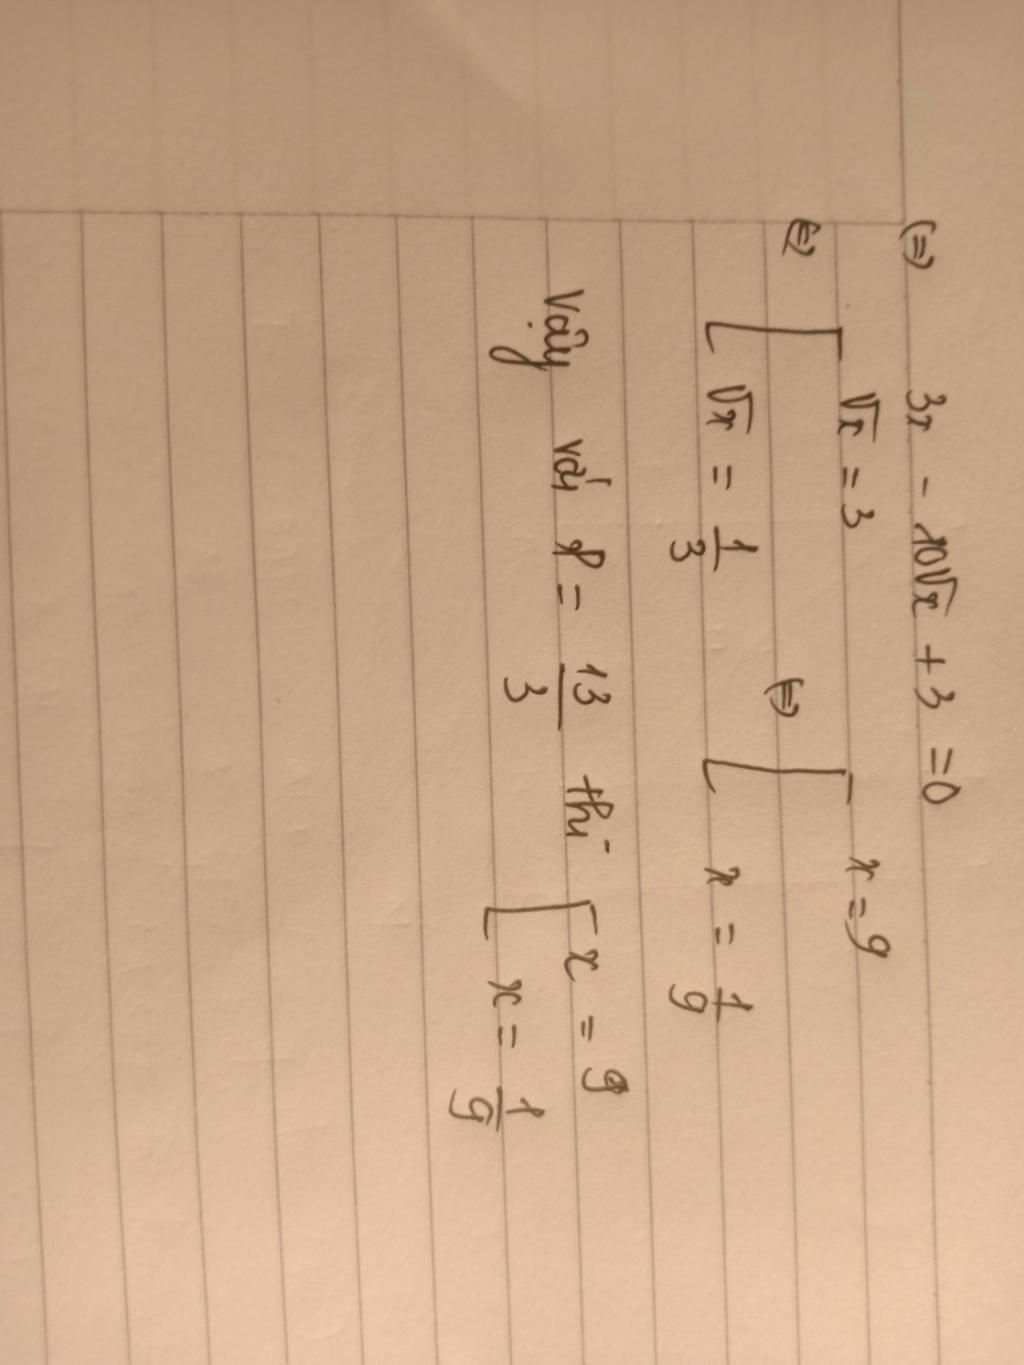 (=) 3x - 10√x + 3 = 0
(=) [ √x = 3 (=) [ x = 9
√x = 1/3 x = 1/9
Vậy với P = 13/3 thì [ x = 9
x = 1/9